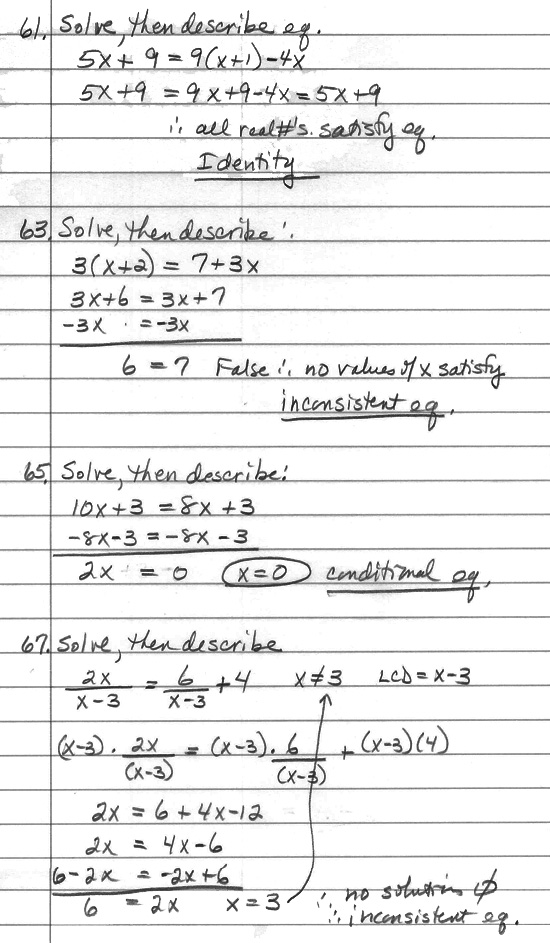 61. Solve, then describe eq.
5x + 9 = 9(x+1) - 4x
5x + 9 = 9x + 9 - 4x = 5x + 9
∴ all real #'s. satisfy eq.
Identity
63. Solve, then describe:
3(x+2) = 7+3x
3x+6 = 3x+7
-3x = -3x
6 = 7 False ∴ no values of x satisfy
inconsistent eq.
65. Solve, then describe:
10x+3 = 8x +3
-8x-3 = -8x - 3
2x = 0 x=0 conditional eq.
67. Solve, then describe
2x/(x-3) = 6/(x-3) + 4 x≠3 LCD = x-3
(x-3) · 2x/(x-3) = (x-3) · 6/(x-3) + (x-3)(4)
2x = 6 + 4x - 12
2x = 4x - 6
6 - 2x = -2x + 6
6 = 2x x = 3 ∴ no solutions ∅
∴ inconsistent eq.